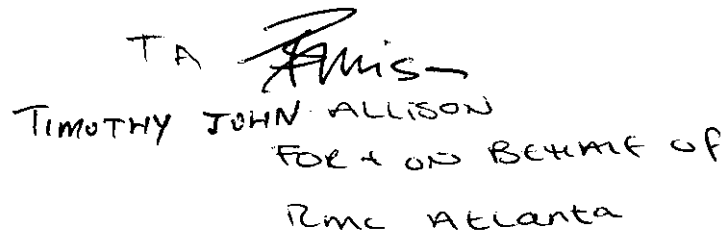 TA Allison
TIMOTHY JOHN ALLISON
FOR + ON BEHALF OF
RMC Atlanta